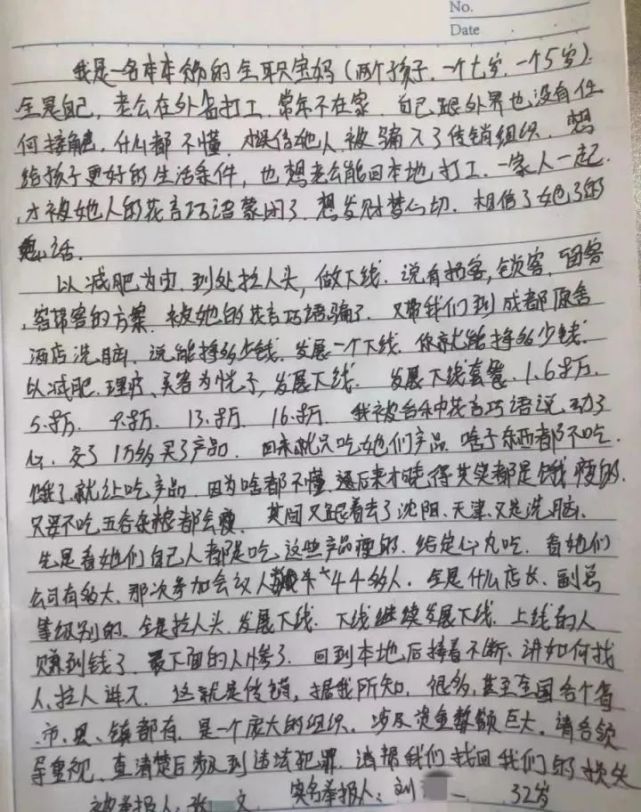 No.
Date
我是一名本本份的全职宝妈（两个孩子.一个七岁.一个5岁）
全是自己，老公在外省打工.常年不在家.自己跟外界也没有任
何接触，什么都不懂.相信他人被骗入了传销组织.想
给孩子更好的生活条件，也想老公能回本地打工.一家人一起.
才被她人的花言巧语蒙闭了.想发财梦心切.相信了她了的
鬼话.
以减肥为由.到处拉人头，做下线.说有拓客，锁客.留客
，客带客的方案.被她的花言巧语骗了.又带我们到成都原舍
酒店洗脑.说能挣多少钱.发展一个下线.你就能挣多少钱.
以减肥.理疗、美容为幌子，发展下线.发展下线套餐.1.6万.
5.8万. 9.8万. 13.8万. 16.8万. 我被各种花言巧语说.动了
心.交了1万多买了产品.回来就只吃她们产品.啥子东西都不吃.
饿了就让吃产品.因为啥都不懂.还后来才晓得其实都是饿瘦的.
只要不吃五谷杂粮都会瘦.其间又跟着去了沈阳、天津.又是洗脑.
先是看她们自己人都是吃这些产品瘦的.给定心丸吃.看她们
公司有多大.那次参加会议人 44多人.全是什么店长、副总
等级别的.全是拉人头.发展下线.下线继续发展下线.上线的人
赚到钱了.最下面的人惨了.回到本地后接着不断.讲如何找
人.拉人进入.这就是传销，据我所知.很多，甚至全国各个省
.市、县、镇都有.是一个庞大的组织.涉及资金数额巨大.请各领
导重视.查清楚后涉及到违法犯罪.请帮我们找回我们的损失
被举报人：张 文 实名举报人：刘 32岁